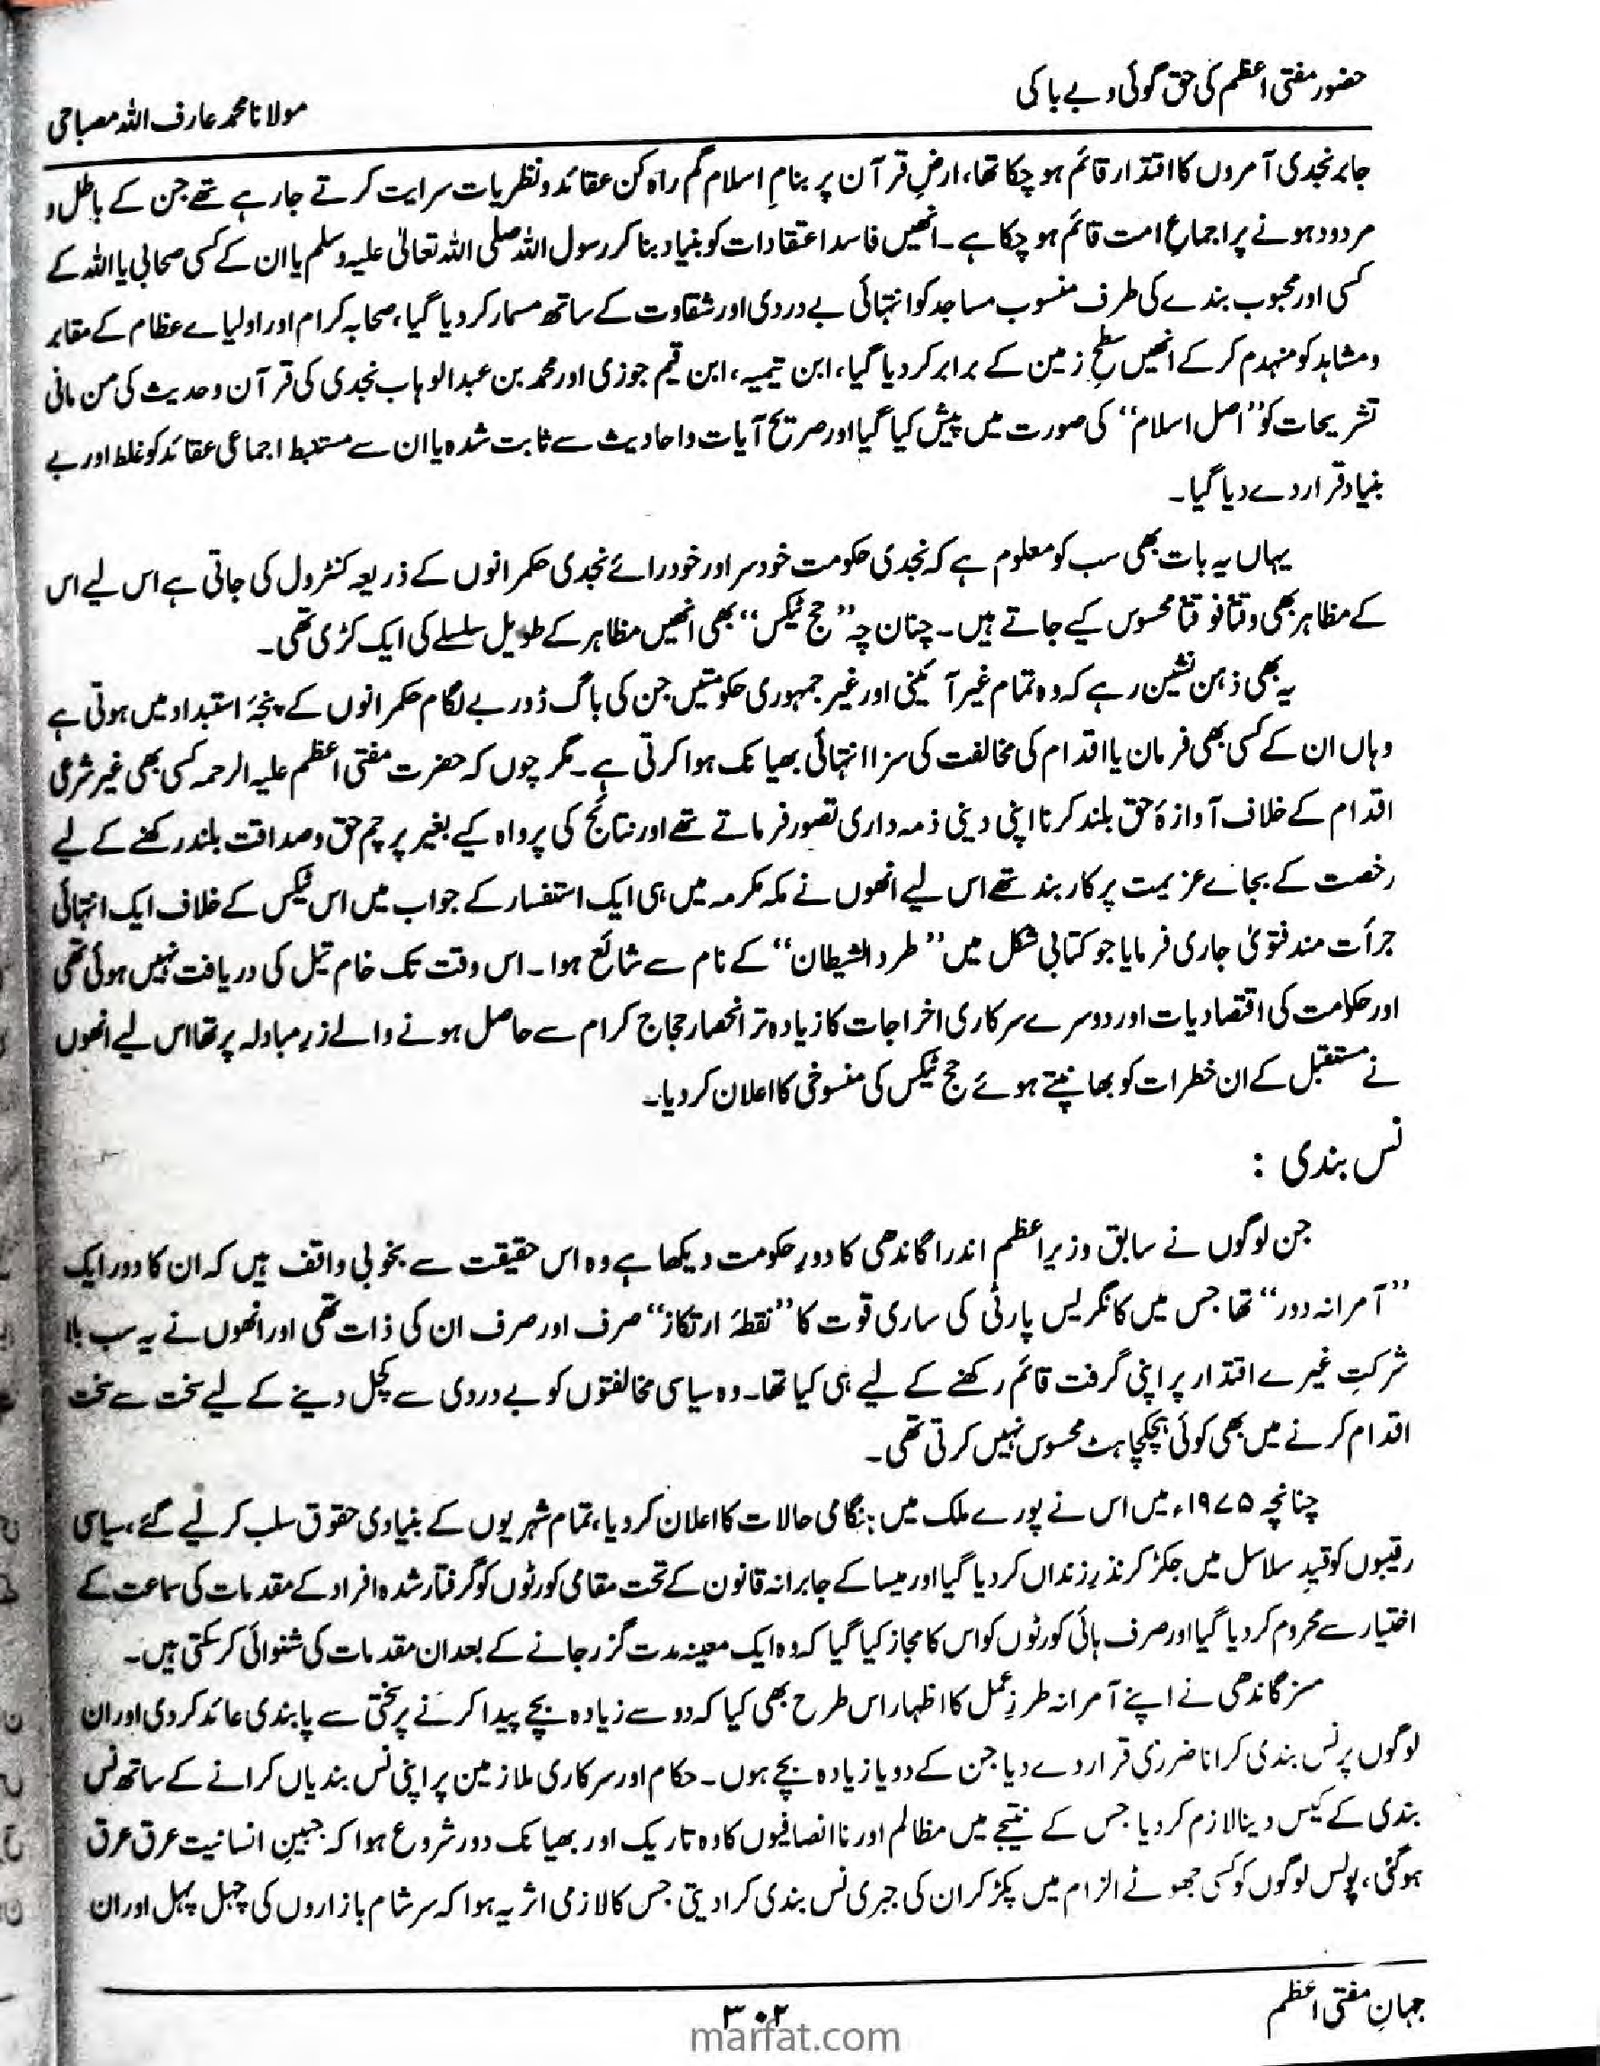 حضور مفتی اعظم کی حق گوئی و بے باکی
مولانا محمد عارف اللہ مصباحی
جابر نجدی آمروں کا اقتدار قائم ہو چکا تھا، ارضِ قرآن پر بنامِ اسلام گم راہ کن عقائد و نظریات سرایت کرتے جا رہے تھے جن کے باطل و
مردود ہونے پر اجماعِ امت قائم ہو چکا ہے۔ انھیں فاسد اعتقادات کو بنیاد بنا کر رسول اللہ صلی اللہ تعالیٰ علیہ وسلم یا ان کے کسی صحابی یا اللہ کے
کسی اور محبوب بندے کی طرف منسوب مساجد کو انتہائی بے دردی اور شقاوت کے ساتھ مسمار کر دیا گیا، صحابہ کرام اور اولیاے عظام کے مقابر
و مشاہد کو منہدم کر کے انھیں سطحِ زمین کے برابر کر دیا گیا، ابن تیمیہ، ابن قیم جوزی اور محمد بن عبد الوہاب نجدی کی قرآن و حدیث کی من مانی
تشریحات کو ’’اصل اسلام‘‘ کی صورت میں پیش کیا گیا اور صریح آیات و احادیث سے ثابت شدہ یا ان سے مستنبط اجماعی عقائد کو غلط اور بے
بنیاد قرار دے دیا گیا۔
یہاں یہ بات بھی سب کو معلوم ہے کہ نجدی حکومت خود سر اور خود رائے نجدی حکمرانوں کے ذریعہ کنٹرول کی جاتی ہے اس لیے اس
کے مظاہر بھی وقتاً فوقتاً محسوس کیے جاتے ہیں۔ چنان چہ ’’حج ٹیکس‘‘ بھی انھیں مظاہر کے طویل سلسلے کی ایک کڑی تھی۔
یہ بھی ذہن نشین رہے کہ وہ تمام غیر آئینی اور غیر جمہوری حکومتیں جن کی باگ ڈور بے لگام حکمرانوں کے پنجۂ استبداد میں ہوتی ہے
وہاں ان کے کسی بھی فرمان یا اقدام کی مخالفت کی سزا انتہائی بھیانک ہوا کرتی ہے۔ مگر چوں کہ حضرت مفتی اعظم علیہ الرحمہ کسی بھی غیر شرعی
اقدام کے خلاف آوازۂ حق بلند کرنا اپنی دینی ذمہ داری تصور فرماتے تھے اور نتائج کی پرواہ کیے بغیر پرچم حق و صداقت بلند رکھنے کے لیے
رخصت کے بجاے عزیمت پر کار بند تھے اس لیے انھوں نے مکہ مکرمہ میں ہی ایک استفسار کے جواب میں اس ٹیکس کے خلاف ایک انتہائی
جرأت مند فتویٰ جاری فرمایا جو کتابی شکل میں ’’طرد الشیطان‘‘ کے نام سے شائع ہوا۔ اس وقت تک خام تیل کی دریافت نہیں ہوئی تھی
اور حکومت کی اقتصادیات اور دوسرے سرکاری اخراجات کا زیادہ تر انحصار حجاج کرام سے حاصل ہونے والے زرِ مبادلہ پر تھا اس لیے انھوں
نے مستقبل کے ان خطرات کو بھانپتے ہوئے حج ٹیکس کی منسوخی کا اعلان کر دیا۔
نس بندی :
جن لوگوں نے سابق وزیر اعظم اندرا گاندھی کا دورِ حکومت دیکھا ہے وہ اس حقیقت سے بخوبی واقف ہیں کہ ان کا دور ایک
’’آمرانہ دور‘‘ تھا جس میں کانگریس پارٹی کی ساری قوت کا ’’نقطۂ ارتکاز‘‘ صرف اور صرف ان کی ذات تھی اور انھوں نے یہ سب بلا
شرکتِ غیرے اقتدار پر اپنی گرفت قائم رکھنے کے لیے ہی کیا تھا۔ وہ سیاسی مخالفتوں کو بے دردی سے کچل دینے کے لیے سخت سے سخت
اقدام کرنے میں بھی کوئی ہچکچاہٹ محسوس نہیں کرتی تھی۔
چنانچہ ۱۹۷۵ء میں اس نے پورے ملک میں ہنگامی حالات کا اعلان کر دیا، تمام شہریوں کے بنیادی حقوق سلب کر لیے گئے، سیاسی
رقیبوں کو قیدِ سلاسل میں جکڑ کر نذرِ زنداں کر دیا گیا اور میسا کے جابرانہ قانون کے تحت مقامی کورٹوں کو گرفتار شدہ افراد کے مقدمات کی سماعت کے
اختیار سے محروم کر دیا گیا اور صرف ہائی کورٹوں کو اس کا مجاز کیا گیا کہ وہ ایک معینہ مدت گزر جانے کے بعد ان مقدمات کی شنوائی کر سکتی ہیں۔
مسز گاندھی نے اپنے آمرانہ طرزِ عمل کا اظہار اس طرح بھی کیا کہ دو سے زیادہ بچے پیدا کرنے پر سختی سے پابندی عائد کر دی اور ان
لوگوں پر نس بندی کرانا ضرزی قرار دے دیا جن کے دو یا زیادہ بچے ہوں۔ حکام اور سرکاری ملازمین پر اپنی نس بندیاں کرانے کے ساتھ نس
بندی کے کیس دینا لازم کر دیا جس کے نتیجے میں مظالم اور ناانصافیوں کا وہ تاریک اور بھیانک دور شروع ہوا کہ جبینِ انسانیت عرق عرق
ہو گئی، پولس لوگوں کو کسی جھوٹے الزام میں پکڑ کر ان کی جبری نس بندی کرا دیتی جس کا لازمی اثر یہ ہوا کہ سر شام بازاروں کی چہل پہل اور ان
جہانِ مفتی اعظم
۳۰۲
marfat.com